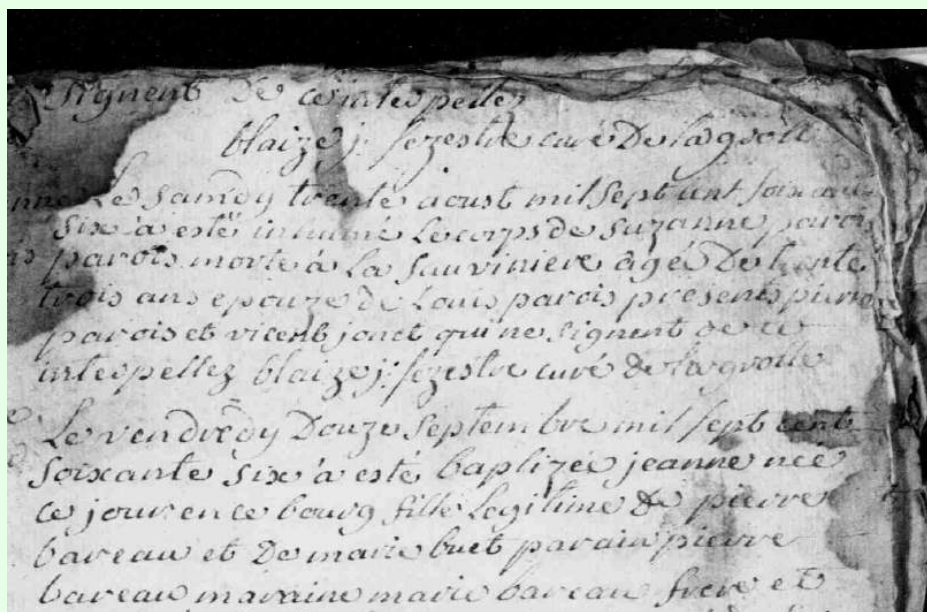 signent De ce intespellez
blaize j: sezestre curé De lagrolle
Le samdy trente aoust mil sept cent soixante
six à esté inhumé Le corps de suzanne parois
parois morte à La sauviniere âgé De trente
trois ans epouze de Louis parois presents pierre
parois et vicent jonet qui ne signent de ce
intespellez blaize j: sezestre curé de lagrolle
Le vendredy Douze septembre mil sept cent
soixante six à esté baptizée jeanne née
ce jour en ce bourg fille Legitime de pierre
bareau et De marie buet parain pierre
bareau maraine marie bareau frere et